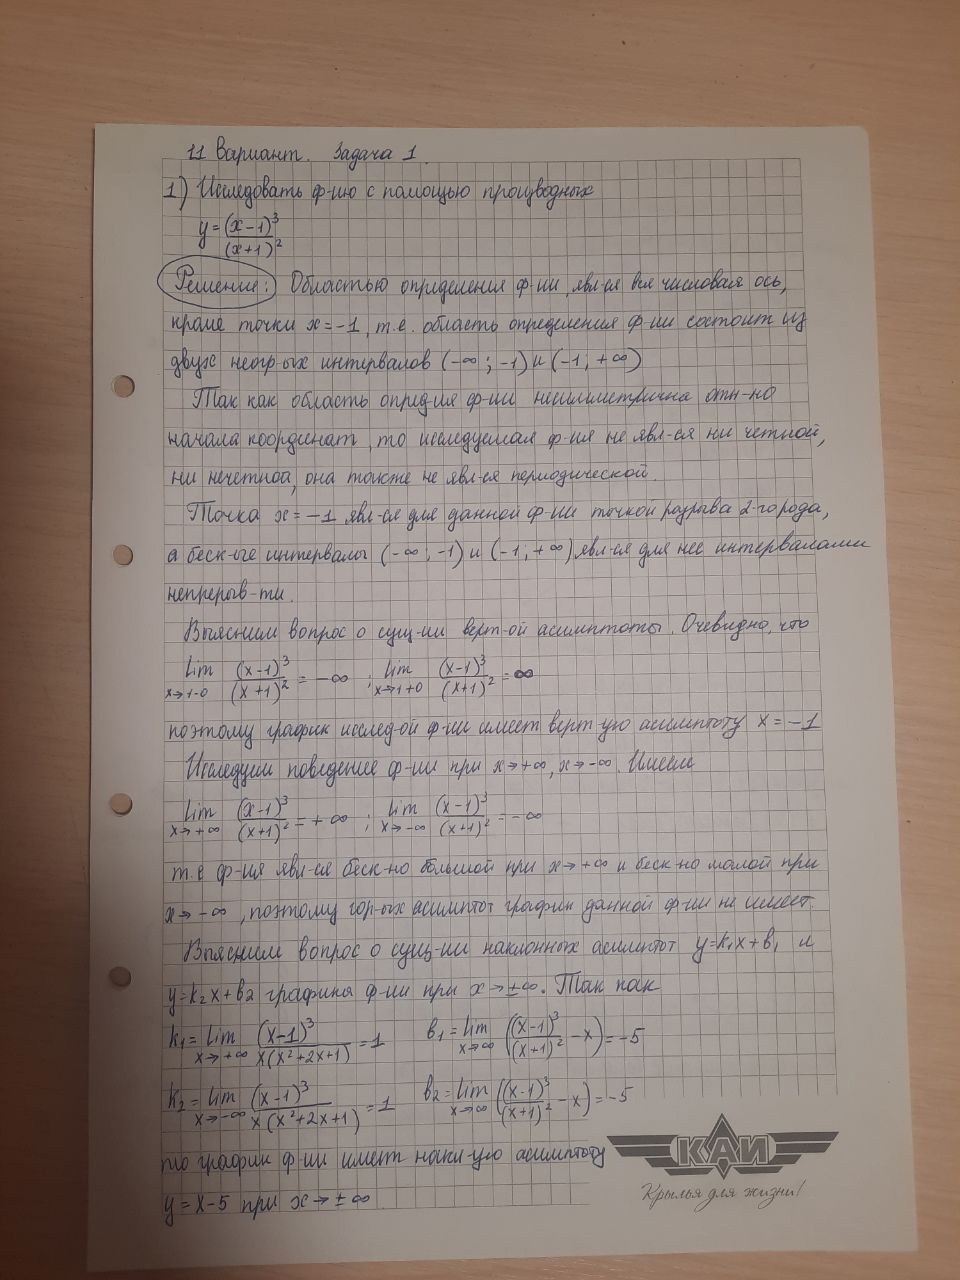 11 Вариант. Задача 1.
1) Исследовать ф-ию с помощью производных
y = (x-1)³/(x+1)²
Решение: Областью определения ф-ии явл-ся вся числовая ось,
кроме точки x = -1, т.е. область определения ф-ии состоит из
двух неогр-ых интервалов (-∞; -1) и (-1; +∞)
Так как область опред-ия ф-ии несимметрична отн-но
начала координат, то исследуемая ф-ия не явл-ся ни четной,
ни нечетной, она также не явл-ся периодической.
Точка x = -1 явл-ся для данной ф-ии точкой разрыва 2-города,
а беск-ые интервалы (-∞; -1) и (-1; +∞) явл-ся для нее интервалами
непрерыв-ти.
Выясним вопрос о сущ-ии верт-ой асимптоты. Очевидно, что
lim x→1-0 (x-1)³/(x+1)² = -∞ ; lim x→1+0 (x-1)³/(x+1)² = ∞
поэтому график исслед-ой ф-ии имеет верт-ую асимптоту x = -1
Исследуем поведение ф-ии при x→+∞, x→-∞. Имеем
lim x→+∞ (x-1)³/(x+1)² = +∞ ; lim x→-∞ (x-1)³/(x+1)² = -∞
т.е ф-ия явл-ся беск-но большой при x→+∞ и беск-но малой при
x→-∞, поэтому гор-ых асимптот график данной ф-ии не имеет.
Выясним вопрос о сущ-ии наклонных асимптот y=k₁x+b₁ и
y=k₂x+b₂ графика ф-ии при x→±∞. Так как
k₁ = lim x→+∞ (x-1)³/x(x²+2x+1) = 1 b₁ = lim x→∞ ((x-1)³/(x+1)² - x) = -5
k₂ = lim x→-∞ (x-1)³/x(x²+2x+1) = 1 b₂ = lim x→∞ ((x-1)³/(x+1)² - x) = -5
то график ф-ии имеет накл-ую асимптоту
y = x-5 при x→±∞
КАИ
Крылья для жизни!